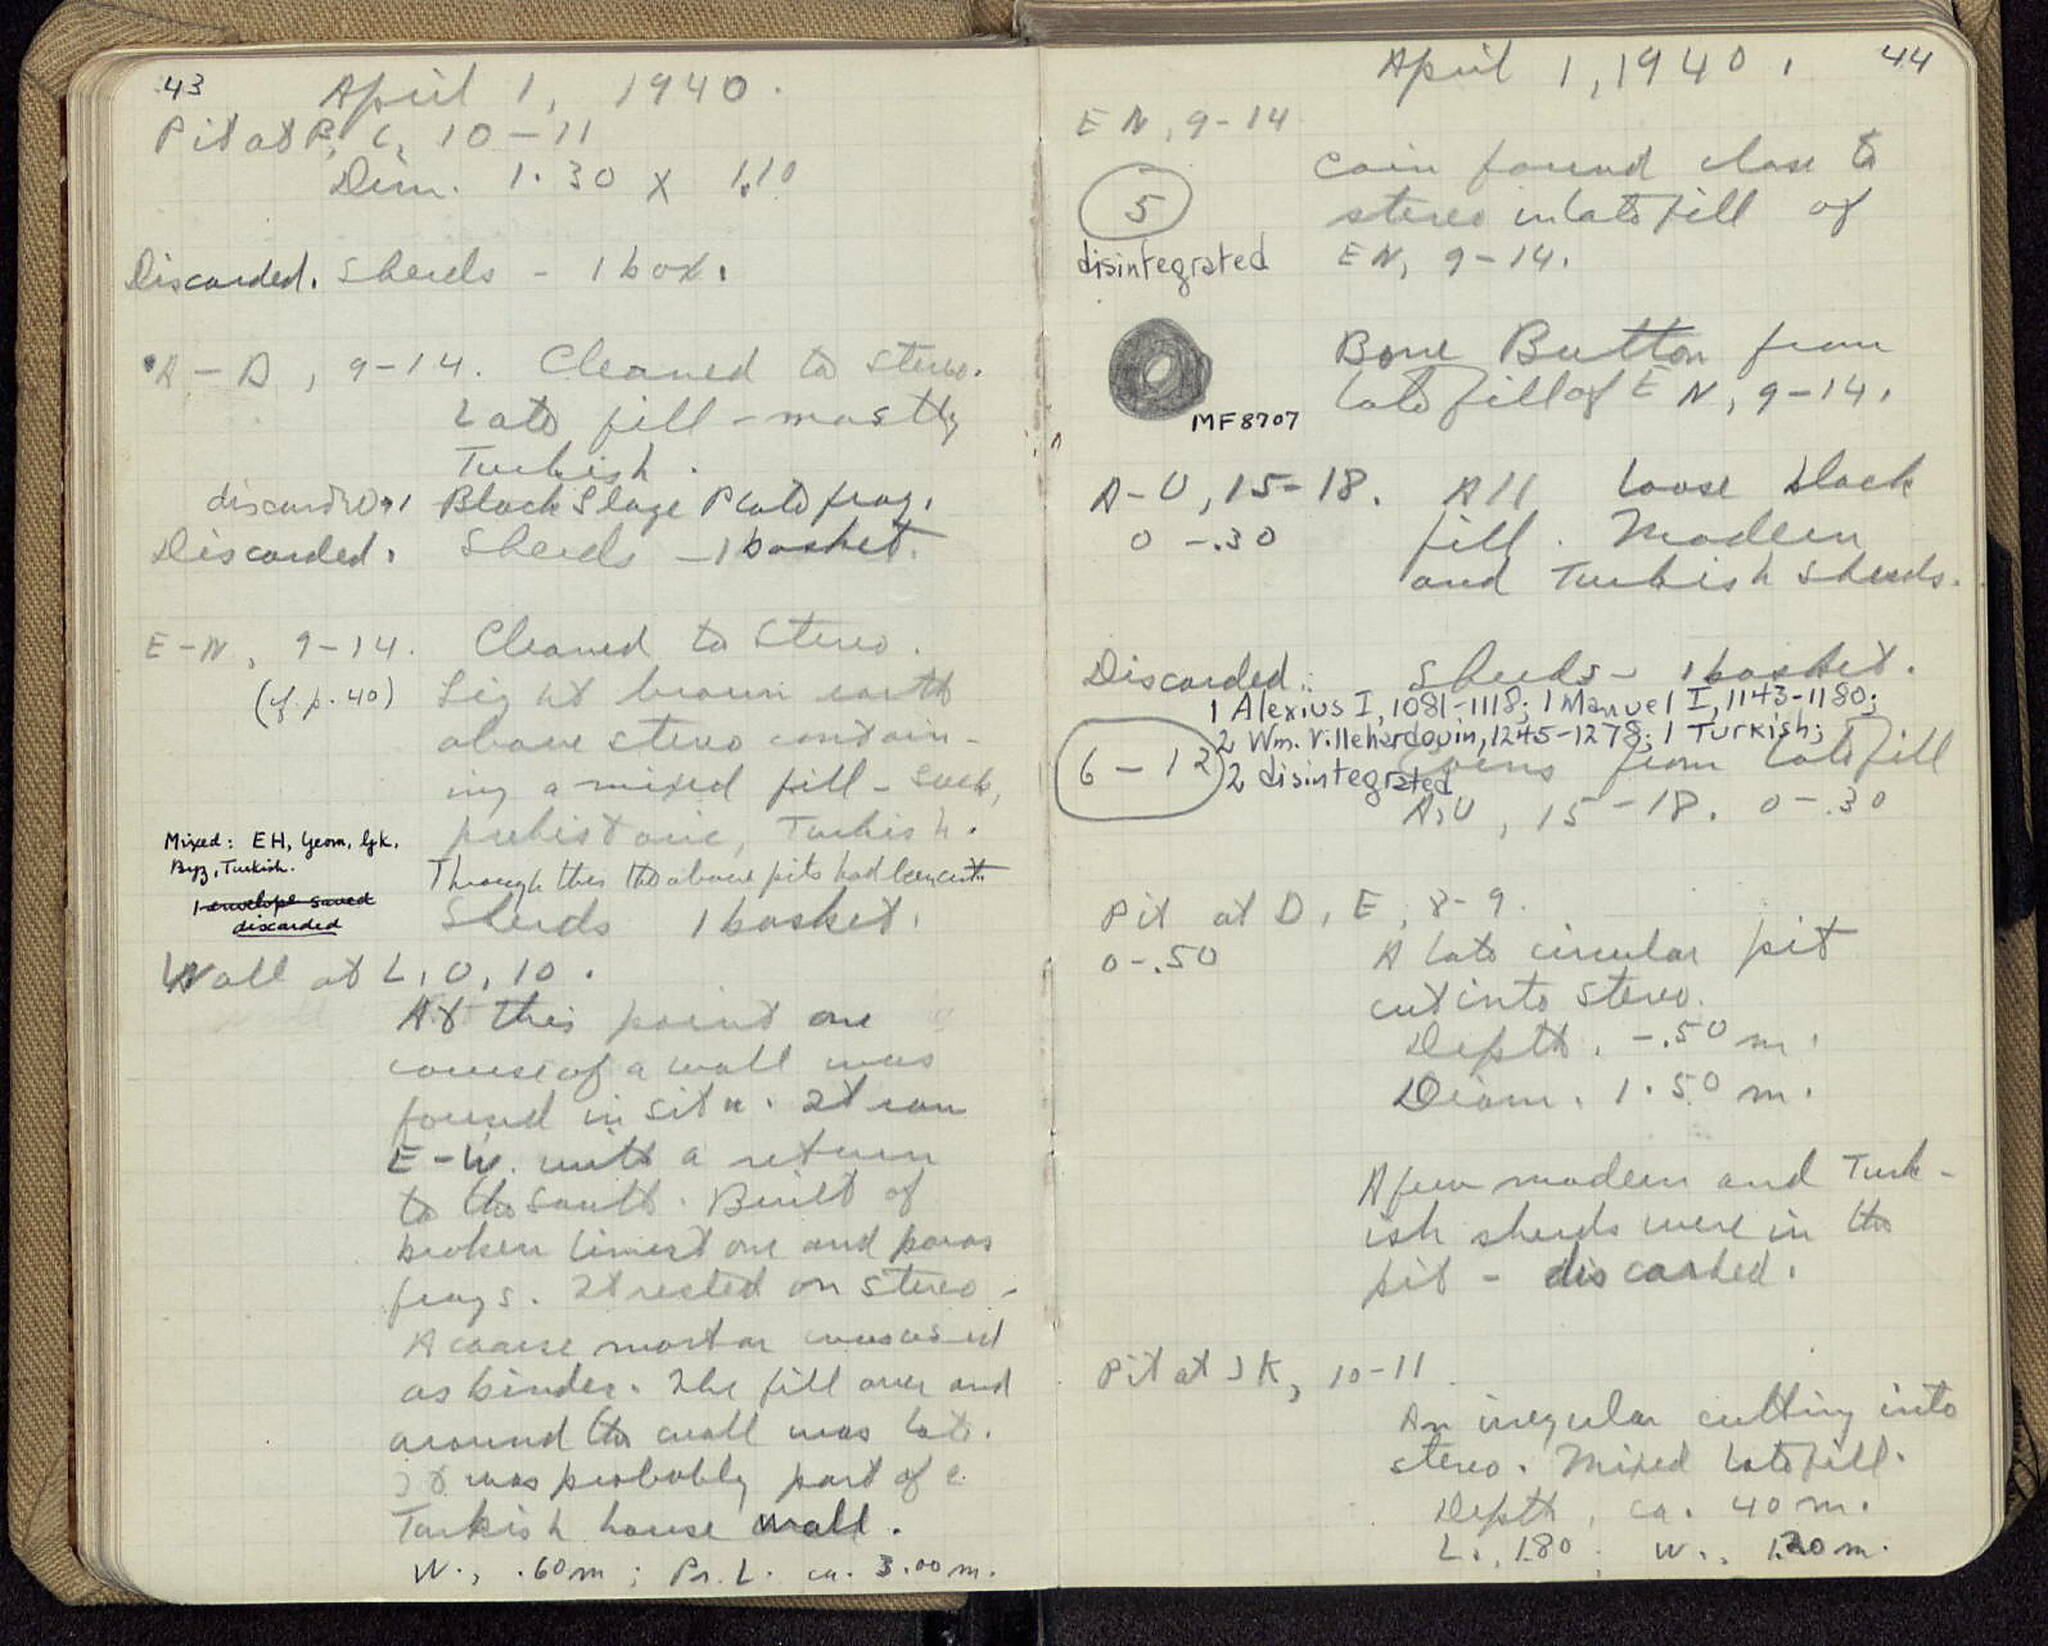 43
April 1, 1940.
Pit at B, C, 10-11
Dim. 1.30 X 1.10
Discarded. Sherds - 1 box.
A-D, 9-14. Cleaned to stereo.
Late fill - mostly
Turkish.
discarded Black Glaze Plate frag.
Discarded. Sherds - 1 basket.
E-N, 9-14. Cleaned to stereo.
(cf. p. 40) Light brown earth
above stereo contain-
ing a mixed fill - such,
prehistoric, Turkish.
Mixed: EH, Geom, Gk,
Byz, Turkish.
Through this the above pits had been cut.
1 envelope saved
discarded
Sherds 1 basket.
Wall at L, O, 10.
At this point one
course of a wall was
found in situ. It ran
E-W. with a return
to the south. Built of
broken limestone and poros
frags. It rested on stereo -
A coarse mortar was used
as binder. The fill over and
around the wall was late.
It was probably part of a
Turkish house wall.
W., .60 m; Pr. L. ca. 3.00 m.
April 1, 1940. 44
EN, 9-14
5
disintegrated
coin found close to
stereo in late fill of
EN, 9-14.
Bone Button from
late fill of EN, 9-14.
MF8707
A-U, 15-18. All loose black
0 -.30 fill. Modern
and Turkish sherds.
Discarded. Sherds - 1 basket.
1 Alexius I, 1081-1118; 1 Manuel I, 1143-1180;
2 Wm. Villehardouin, 1245-1278; 1 Turkish;
2 disintegrated
6 - 12 Coins from late fill
A, U, 15-18. 0-.30
Pit at D, E, 8-9.
0-.50 A late circular pit
cut into stereo.
Depth. -.50 m.
Diam. 1.50 m.
A few modern and Turk-
ish sherds were in the
pit - discarded.
Pit at J K, 10-11
An irregular cutting into
stereo. Mixed late fill.
Depth, ca. 40 m.
L., 1.80. W., 1.20 m.